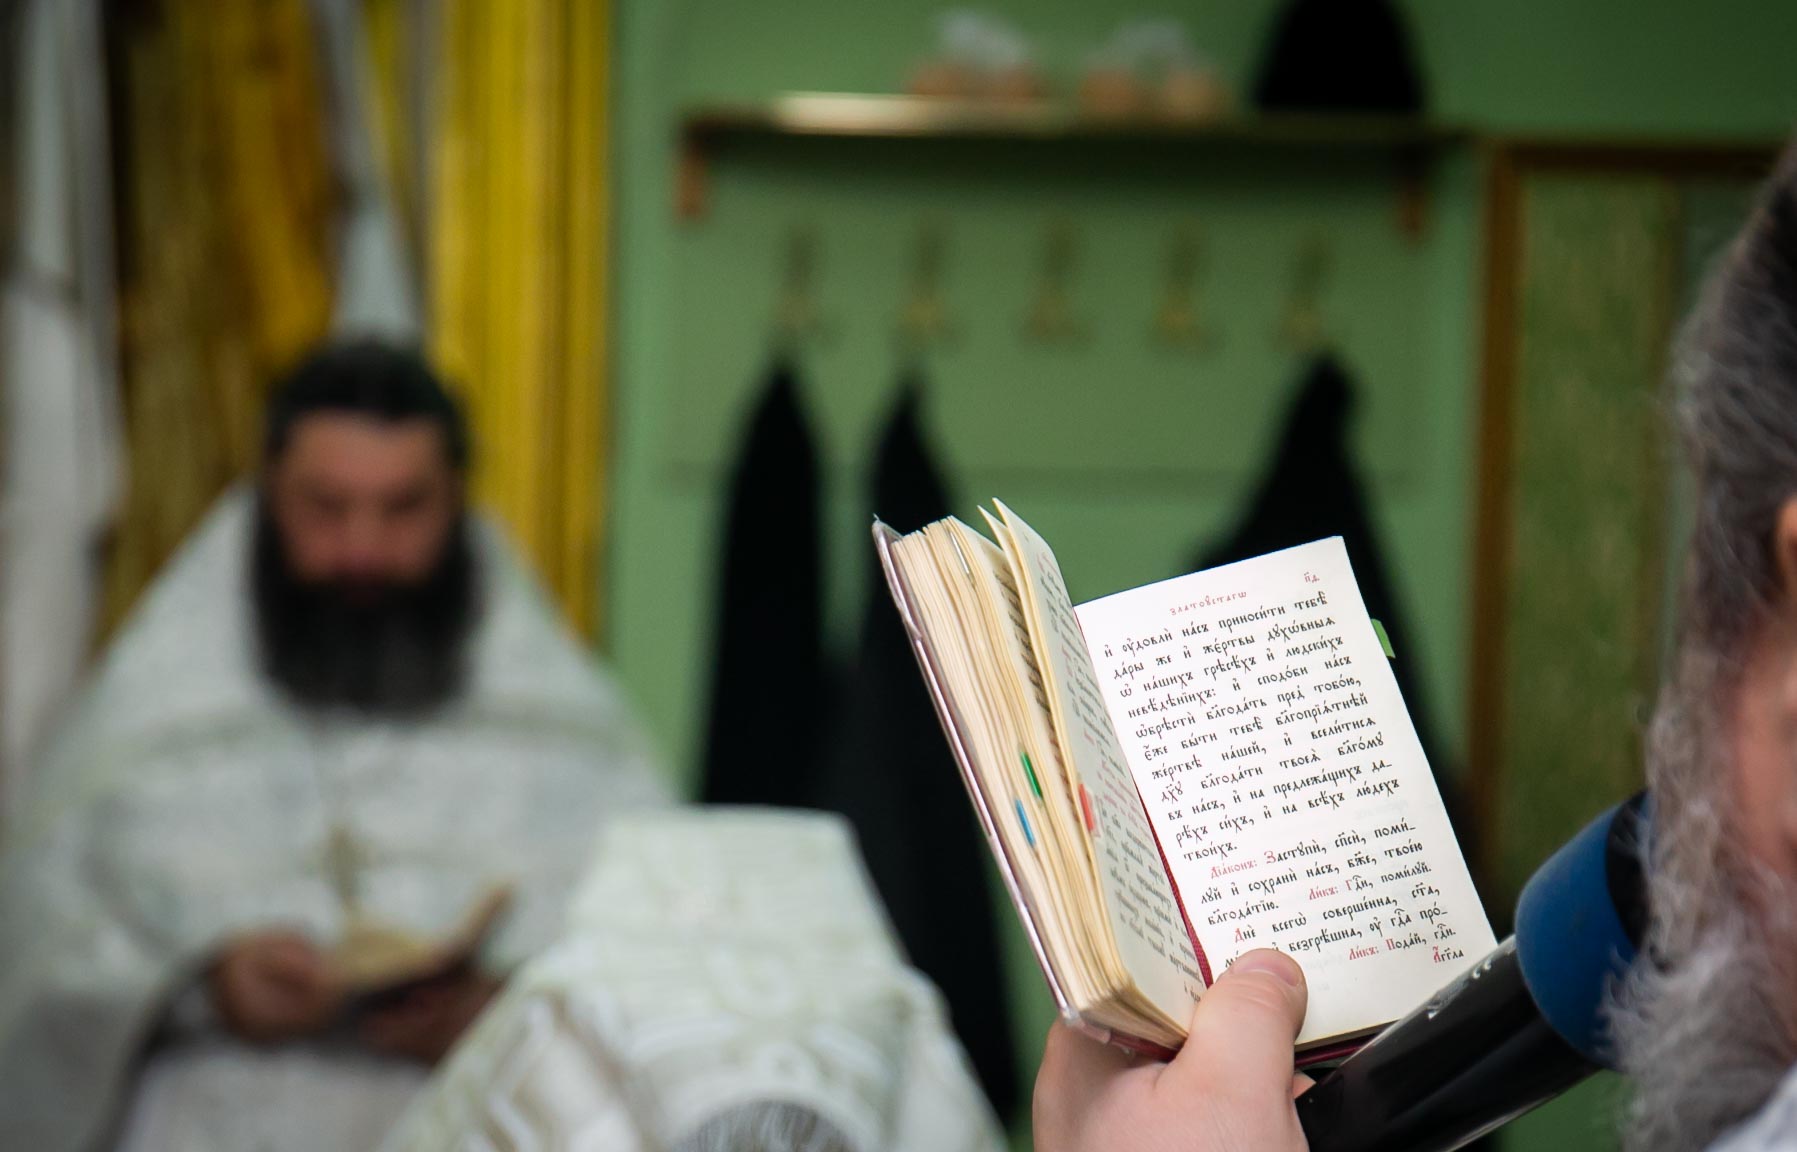 п҃д
златоꙋстагѡ
и҆ ᲂу҆довлѝ на́съ приноси́ти тебѣ̀
да́ры же и҆ жє́ртвы дꙋхѡ́вныѧ
ѡ҆ на́шихъ грѣсѣ́хъ и҆ людски́хъ
невѣ́дѣнїихъ: и҆ сподо́би на́съ
ѡ҆брѣстѝ блгⷣать пред̾ тобо́ю,
є҆́же бы́ти тебѣ̀ благопрїѧ́тнѣй
же́ртвѣ на́шей, и҆ всели́тисѧ
дх҃ꙋ блгⷣати твоеѧ̀ бл҃го́мꙋ
въ на́съ, и҆ на предлежа́щихъ да-
рѣ́хъ си́хъ, и҆ на всѣ́хъ лю́дехъ
твои́хъ.
Дїа́конъ: Застꙋпѝ, сп҃сѝ, поми́-
лꙋй и҆ сохранѝ на́съ, бж҃е, твое́ю
блгⷣатїю. Ли́къ: Гдⷭ҇и, поми́лꙋй.
Днѐ всегѡ̀ соверше́нна, ст҃а,
и҆ безгрѣ́шна, ᲂу҆ гдⷭ҇а про́-
Ли́къ: Пода́й, гдⷭ҇и.
А҆́гг҃ла